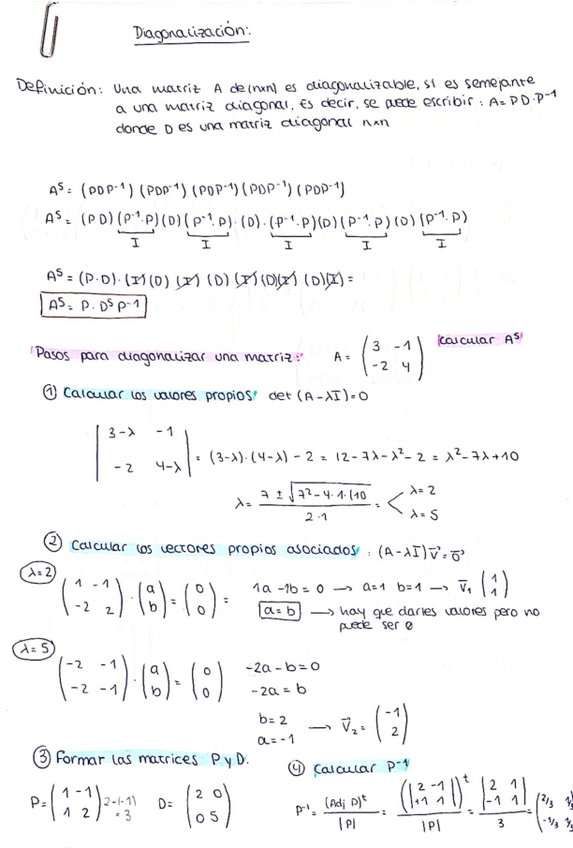 Diagonalización:
Definición: Una matriz A de (nxn) es diagonalizable, si es semejante
a una matriz diagonal. Es decir, se puede escribir: A = PD·P⁻¹
donde D es una matriz diagonal nxn
A⁵ = (PDP⁻¹) (PDP⁻¹) (PDP⁻¹) (PDP⁻¹) (PDP⁻¹)
A⁵ = (PD) (P⁻¹·P) (D) (P⁻¹·P)·(D)·(P⁻¹·P) (D) (P⁻¹·P) (D) (P⁻¹·P)
I I I I I
A⁵ = (P·D)·(I) (D) (I) (D) (I) (D) (I) (D) (I) =
A⁵ = P·D⁵ P⁻¹
Pasos para diagonalizar una matriz: A = (3 -1 / -2 4) Calcular A⁵
① Calcular los valores propios det (A-λI)=0
|3-λ -1 / -2 4-λ| = (3-λ)·(4-λ) - 2 = 12-7λ-λ²-2 = λ²-7λ+10
λ = 7 ± √7²-4·1·(10 / 2·1 = < λ=2 λ=5
② Calcular los vectores propios asociados: (A-λI)v⃗=0⃗
λ=2
(1 -1 / -2 2)·(a / b) = (0 / 0) = 1a -1b = 0 → a=1 b=1 → v̄₁ (1 / 1)
a=b → hay que darles valores pero no
puede ser 0
λ=5
(-2 -1 / -2 -1)·(a / b) = (0 / 0) -2a-b=0
-2a=b
b=2
a=-1 → v⃗₂ = (-1 / 2)
③ Formar las matrices P y D.
④ Calcular P⁻¹
P = (1 -1 / 1 2) 2-(-1) = 3 D = (2 0 / 0 5)
P⁻¹ = (Adj P)ᵗ / |P| = (|2 -1 / +1 1|)ᵗ / |P| = |2 1 / -1 1| / 3 = (2/3 / -1/3